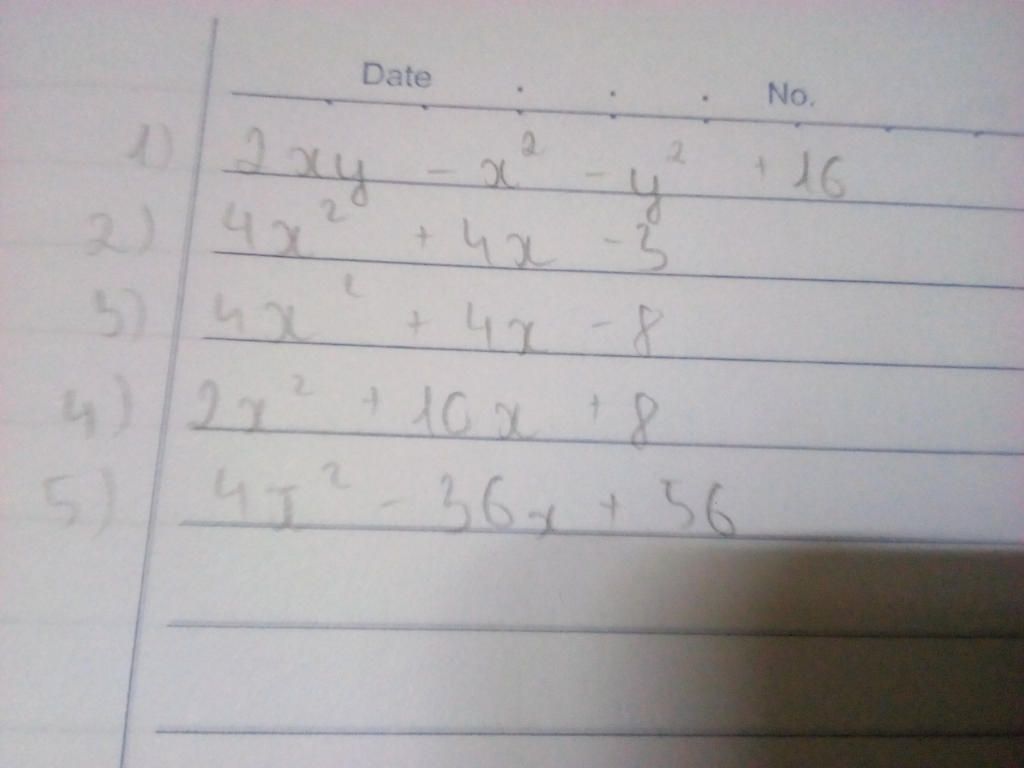 Date . . . No.
1) 2xy - x² - y² + 16
2) 4x² + 4x - 3
3) 4x² + 4x - 8
4) 2x² + 10x + 8
5) 4x² - 36x + 56